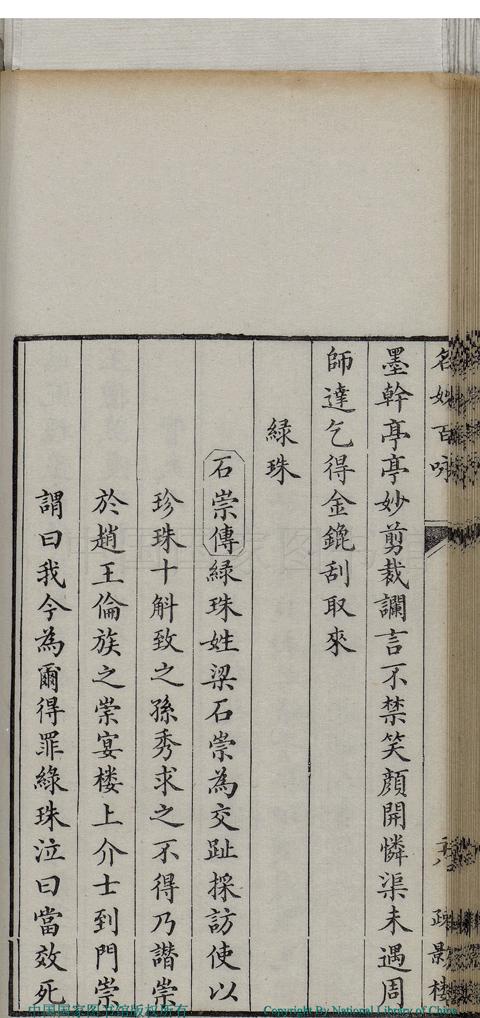 名妙百咏
疎景樓
墨幹亭亭妙剪裁讕言不禁笑顏開憐渠未遇周
師達乞得金鎞刮取來
緑珠
石崇傳緑珠姓梁石崇為交趾採訪使以
珍珠十斛致之孫秀求之不得乃譖崇
於趙王倫族之崇宴楼上介士到門崇
謂曰我今為爾得罪緑珠泣曰當效死
中国国家图书馆版权所有
Copyright By National Library of China